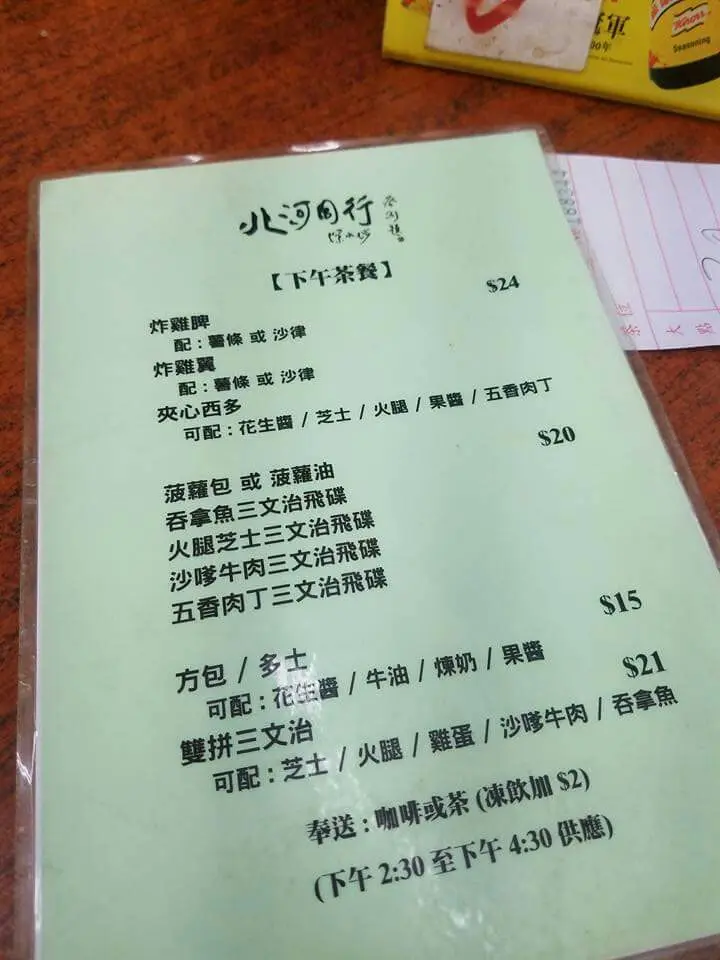 軍
00年
Knorr
Seasoning
北河同行
深水埗
【下午茶餐】
$24
炸雞脾
配：薯條 或 沙律
炸雞翼
配：薯條 或 沙律
夾心西多
可配：花生醬 / 芝士 / 火腿 / 果醬 / 五香肉丁
$20
菠蘿包 或 菠蘿油
吞拿魚三文治飛碟
火腿芝士三文治飛碟
沙嗲牛肉三文治飛碟
五香肉丁三文治飛碟
$15
方包 / 多士
可配：花生醬 / 牛油 / 煉奶 / 果醬
$21
雙拼三文治
可配：芝士 / 火腿 / 雞蛋 / 沙嗲牛肉 / 吞拿魚
奉送：咖啡或茶 (凍飲加 $2)
(下午 2:30 至下午 4:30 供應)